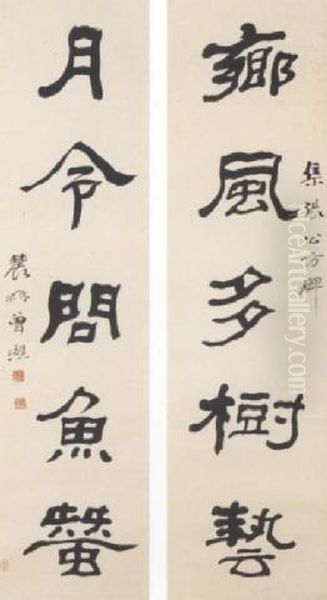 鄉風多樹藝
集張公方碑
月令問魚蠶
農髯曾熙
NiceArtGallery.com